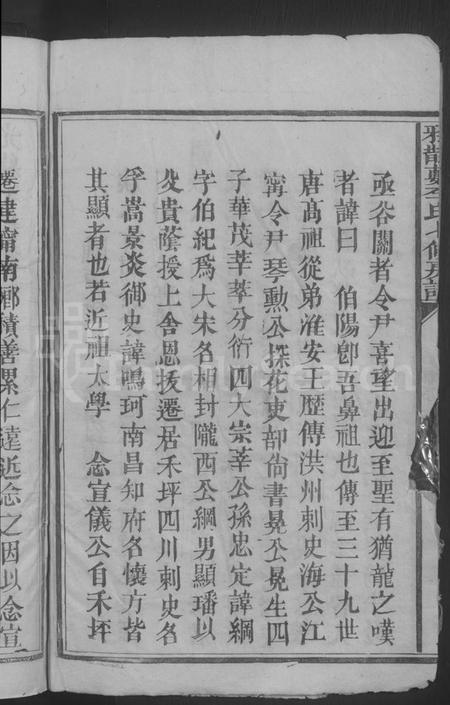 亟谷關者令尹喜望出迎至聖有猶龍之嘆
者諱曰 伯陽卽吾鼻祖也傳至三十九世
唐高祖從弟淮安王歷傳洪州刺史海公江
甯令尹琴勲公探花吏部尙書晃公晃生四
子華茂莘萃分衍四大宗莘公孫忠定諱綱
字伯紀爲大宋名相封隴西公綱男顯璠以
父貴蔭授上舍恩拔遷居禾坪四川刺史名
孚嵩景炎御史諱鳴珂南昌知府名懷方皆
其顯者也若近祖太學 念宣儀公自禾坪
遷建甯南鄉積善累仁遠近念之因以念宣